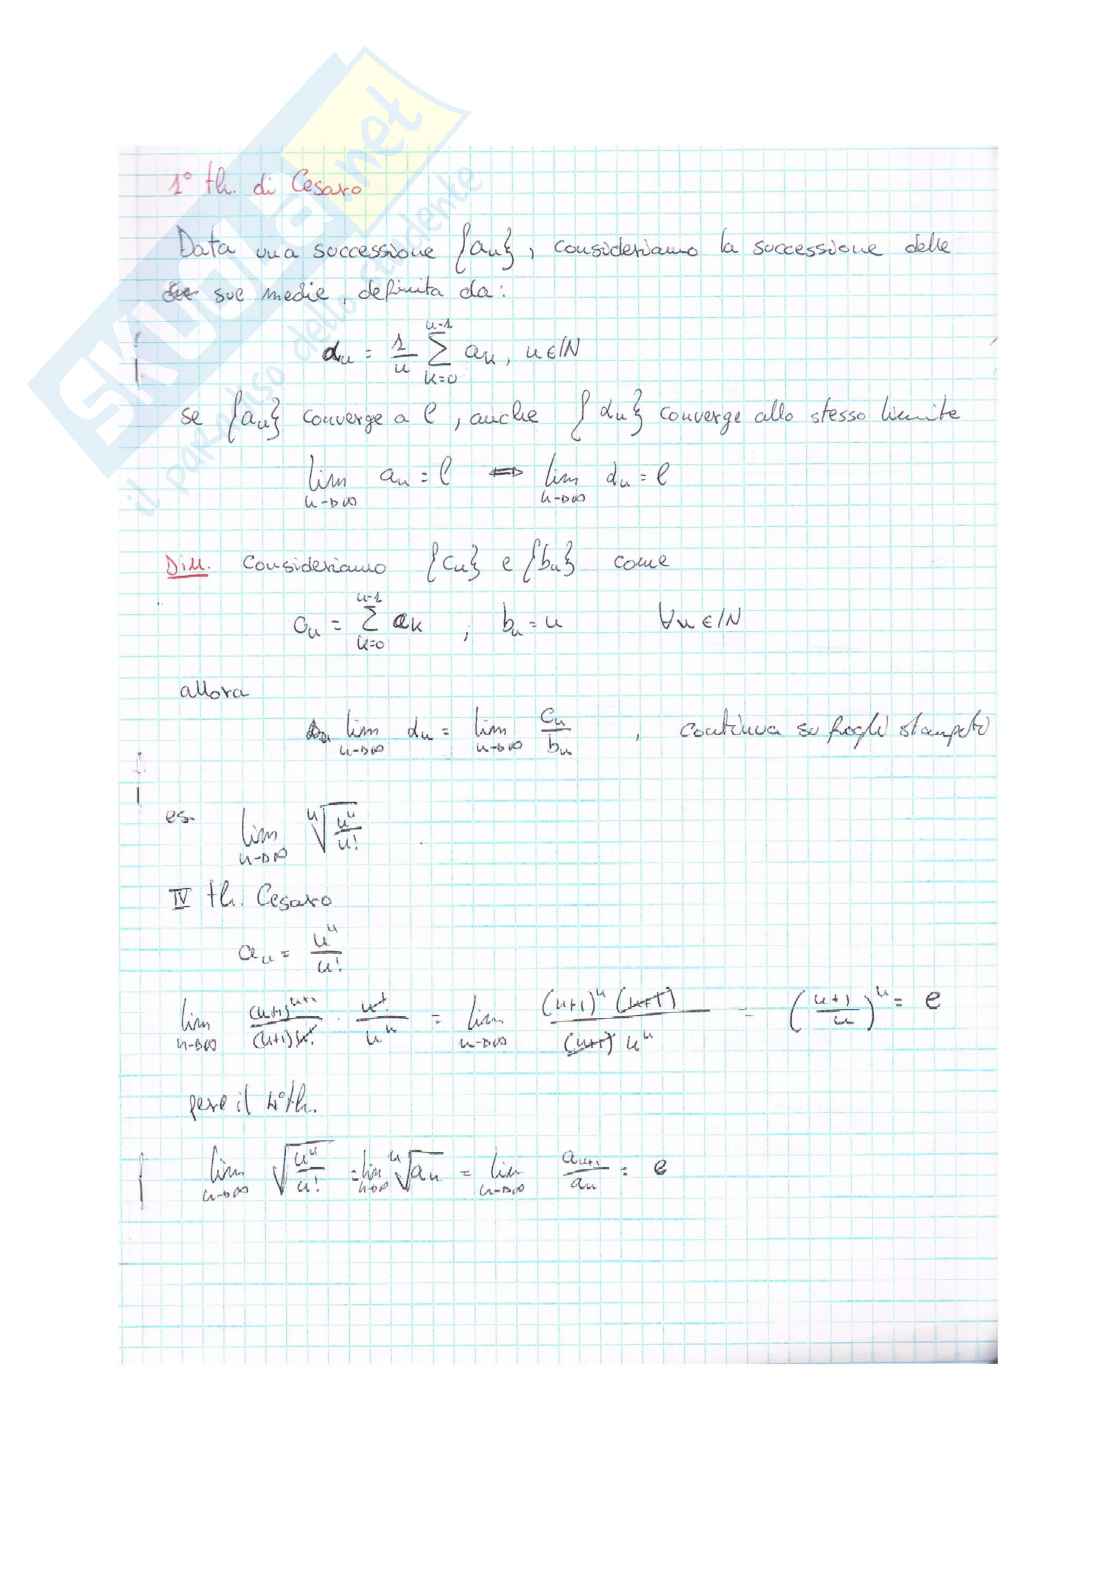 SKUOLA.net
il paradiso dello studente
1° th. di Cesaro
Data una successione {aₙ}, consideriamo la successione delle
sue medie, definita da:
αₙ = 1/n ∑_{k=0}^{n-1} aₖ, n∈ℕ
se {aₙ} converge a l, anche {αₙ} converge allo stesso limite
lim_{n→∞} aₙ = l ⇔ lim_{n→∞} αₙ = l
Dim. Consideriamo {cₙ} e {bₙ} come
cₙ = ∑_{k=0}^{n-1} aₖ ; bₙ = n ∀n∈ℕ
allora
lim_{n→∞} αₙ = lim_{n→∞} cₙ/bₙ , continua su fogli stampati
es. lim_{n→∞} ⁿ√(nⁿ/n!)
IV th. Cesaro
aₙ = nⁿ/n!
lim_{n→∞} (n+1)ⁿ⁺¹/((n+1)n!) · n!/nⁿ = lim_{n→∞} (n+1)ⁿ(n+1)/((n+1)nⁿ) = ((n+1)/n)ⁿ = e
il 4° th.
lim_{n→∞} √(nⁿ/n!) = lim_{n→∞} ⁿ√aₙ = lim_{n→∞} aₙ₊₁/aₙ = e